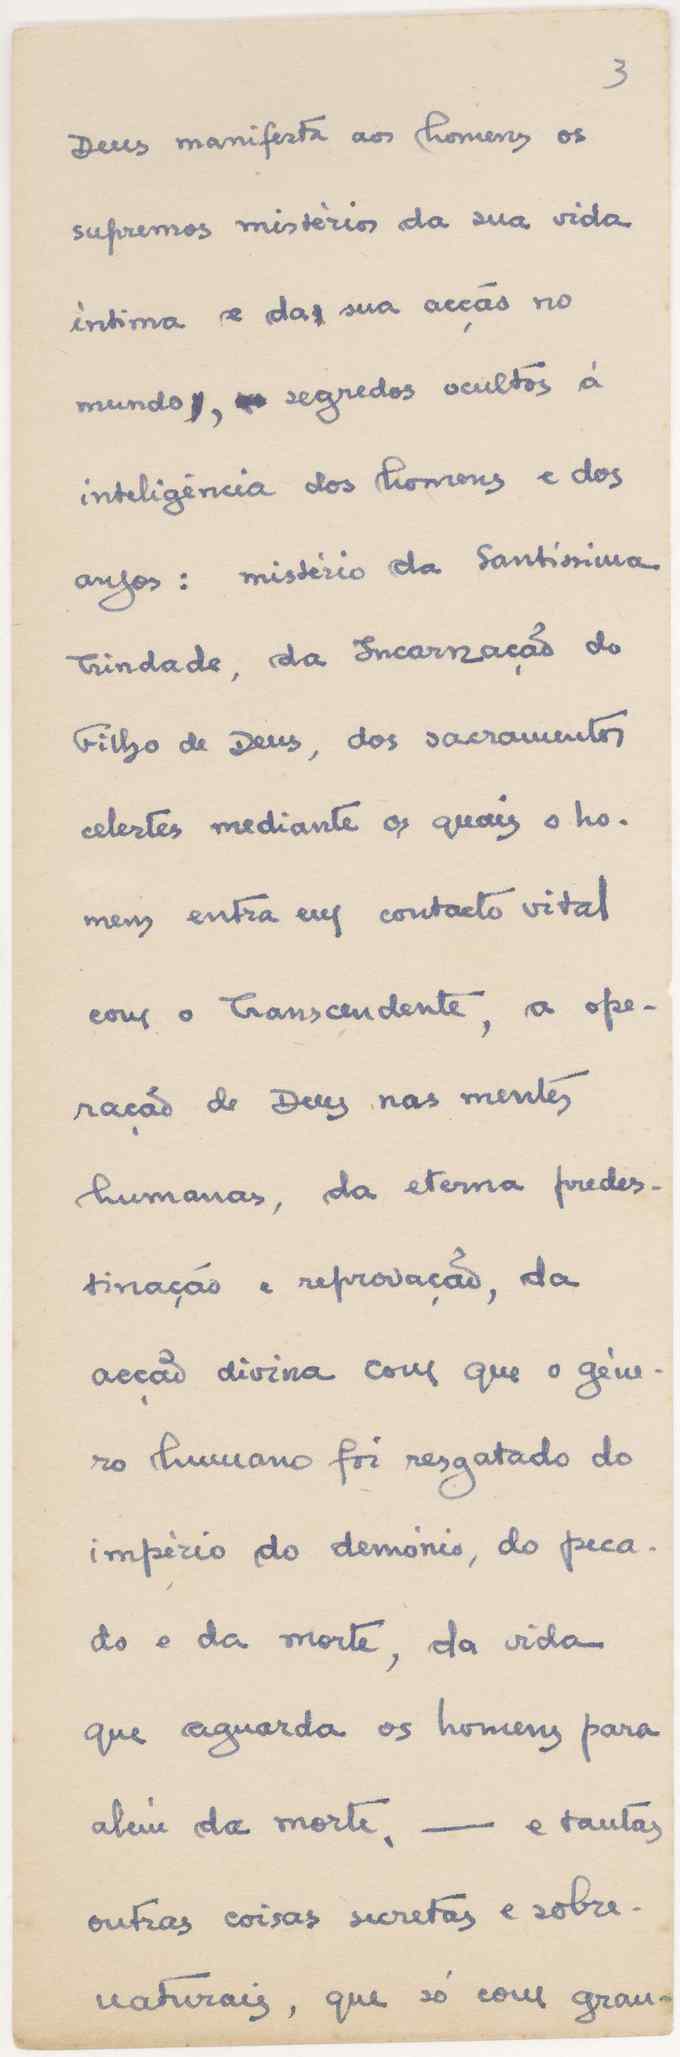 3
Deus manifesta aos homens os
supremos mistérios da sua vida
íntima e da sua acção no
mundo, segredos ocultos á
inteligência dos homens e dos
anjos: mistério da Santíssima
Trindade, da Incarnação do
Filho de Deus, dos sacramentos
celestes mediante os quais o ho-
mem entra em contacto vital
com o Transcendente, a ope-
ração de Deus nas mentes
humanas, da eterna predes-
tinação e reprovação, da
acção divina com que o géne-
ro humano foi resgatado do
império do demónio, do peca-
do e da morte, da vida
que aguarda os homens para
além da morte, — e tantas
outras coisas secretas e sobre-
naturais, que só com gran-